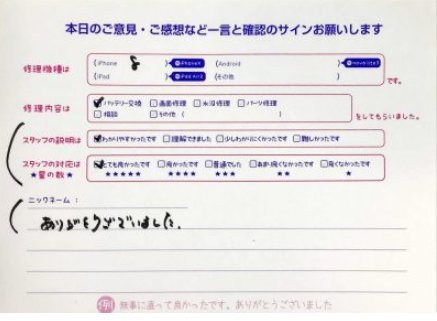 本日のご意見・ご感想など一言と確認のサインお願いします
修理機種は (iPhone 8 ) iPhoneX (Android ) nova lite2
(iPad ) iPad Air2 (その他 ) です。
修理内容は ☑バッテリー交換 □画面修理 □水没修理 □パーツ修理
□相談 □その他 ( ) をしてもらいました。
スタッフの説明は ☑わかりやすかったです □理解できました □少しわかりにくかったです □難しかったです
スタッフの対応は ☑とても良かったです □良かったです □普通でした □あまり良くなかったです □良くなかったです
★星の数★ ★★★★★ ★★★★ ★★★ ★★ ★
ニックネーム：
ありがとうございました。
例 無事に直って良かったです。ありがとうございました